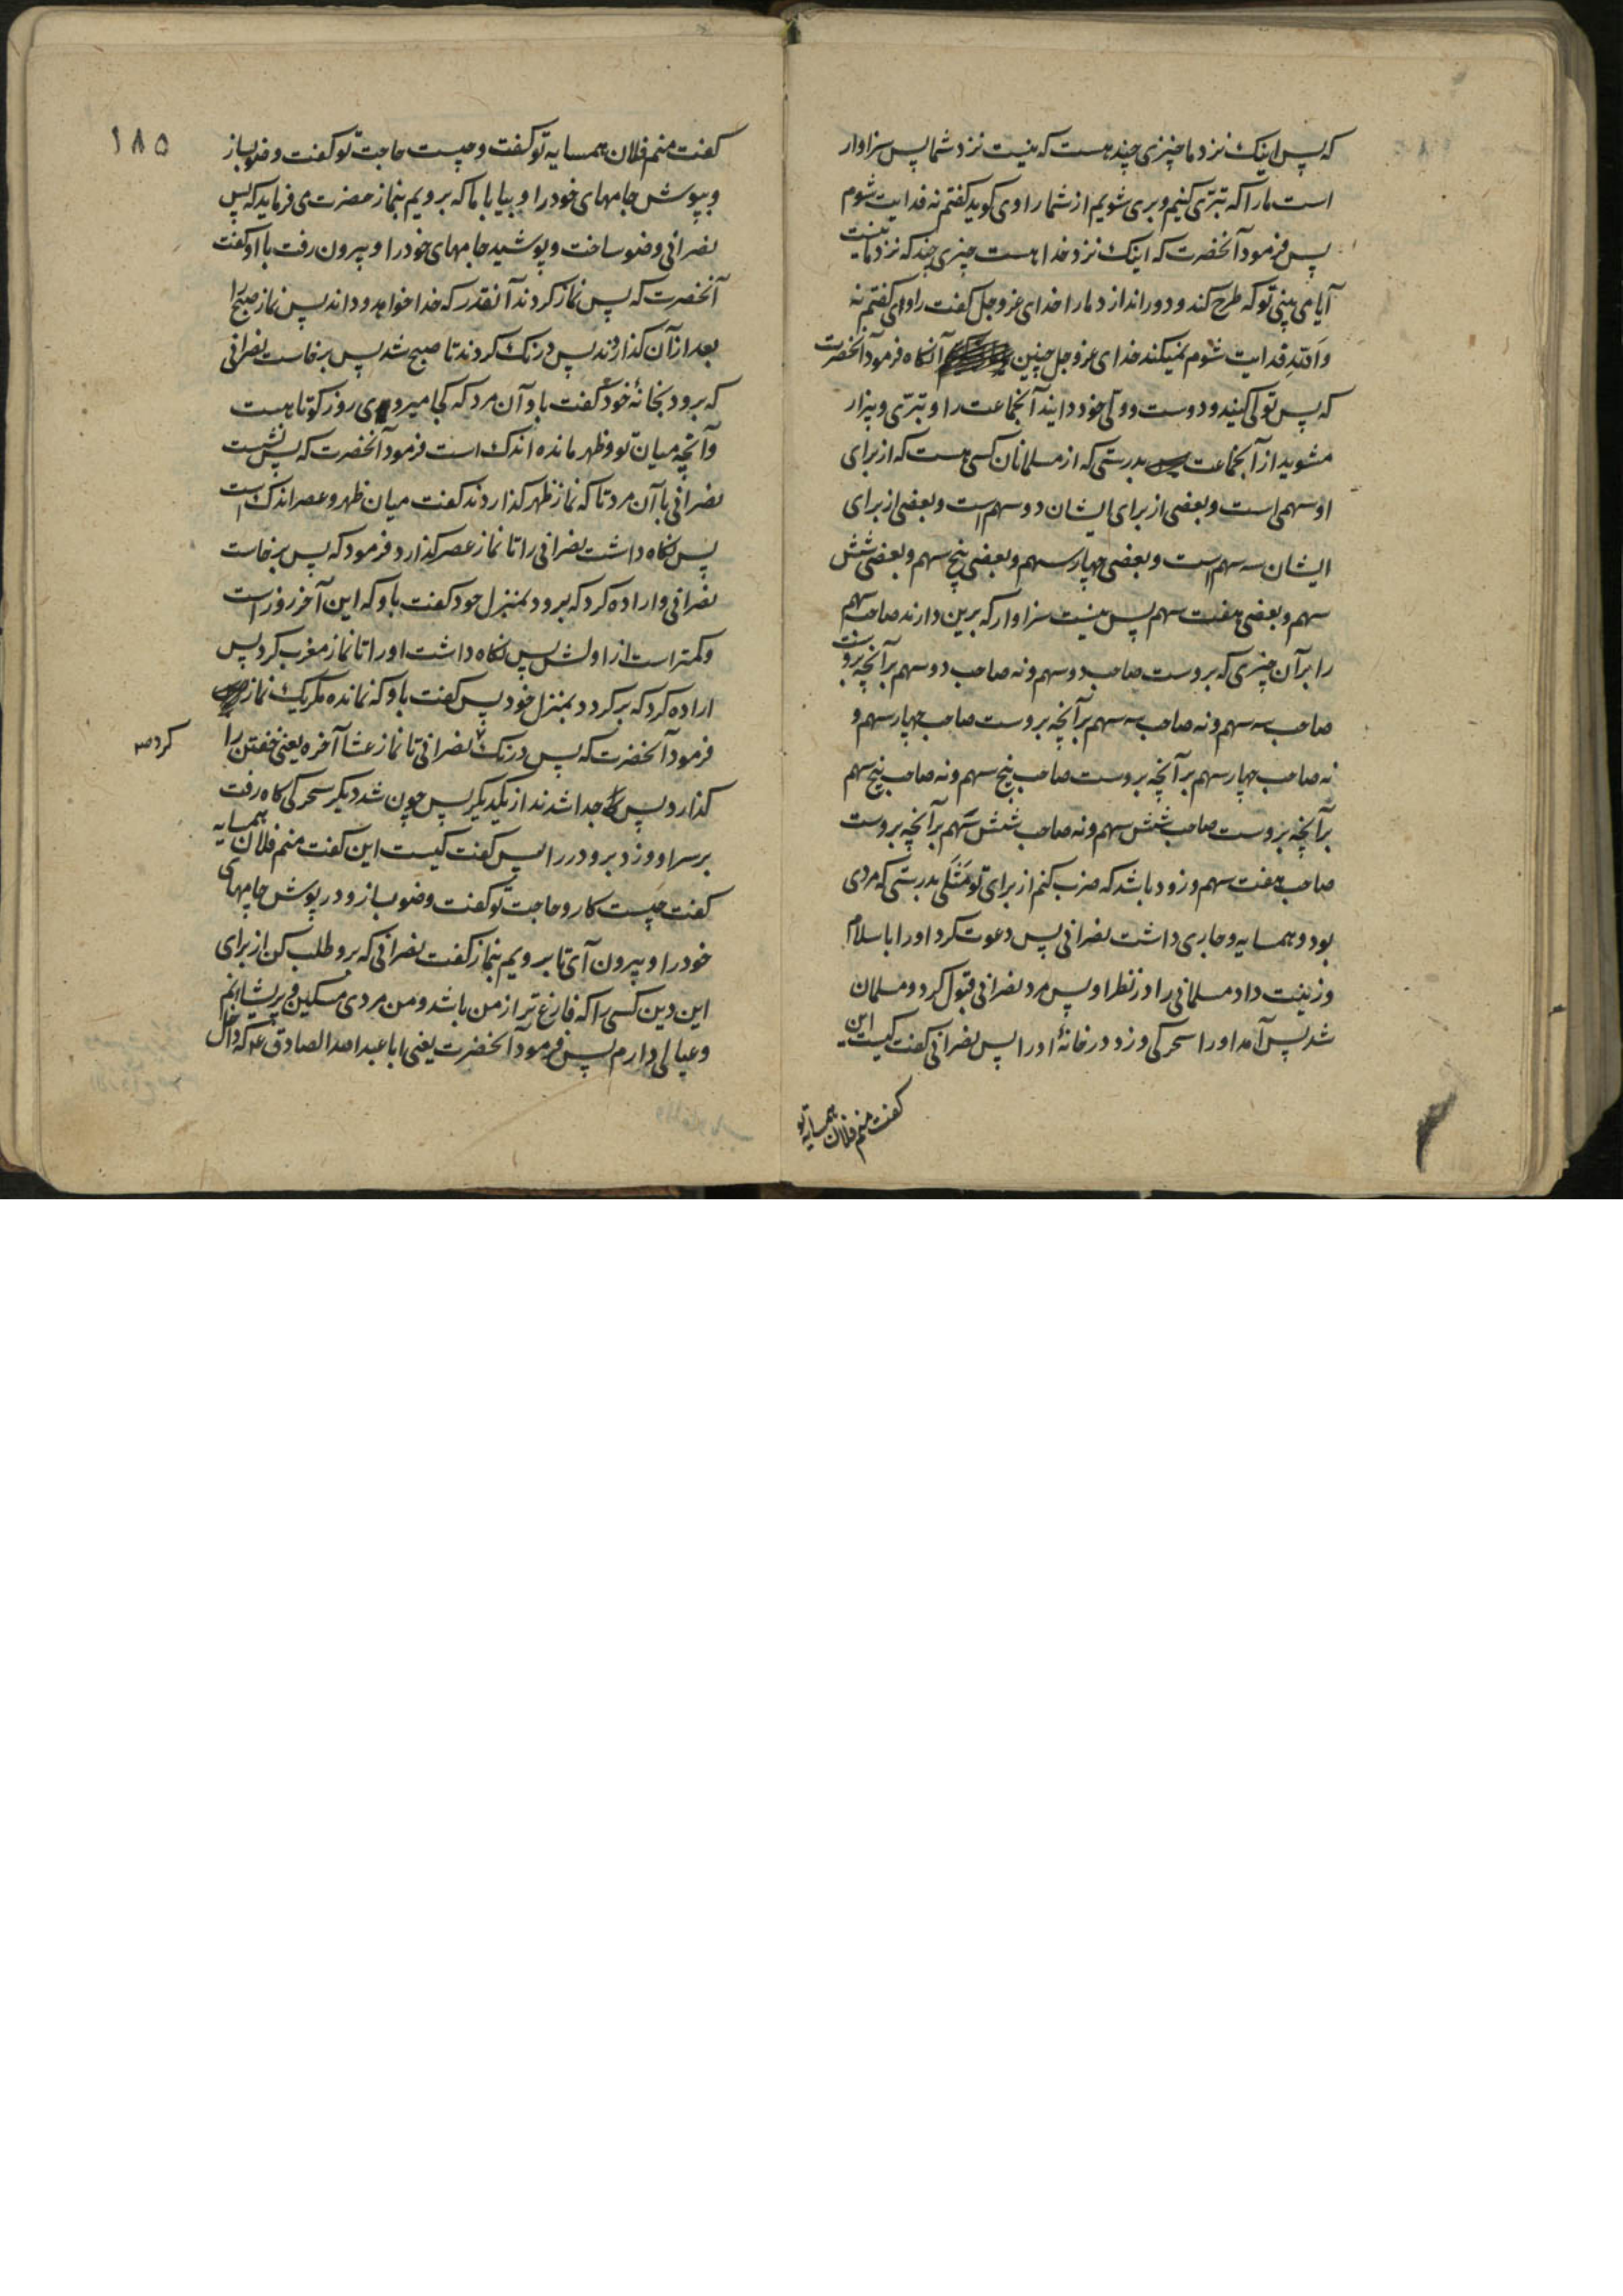 که پس اینک نزد ما چیزی چند هست که نیست نزد شما پس سزاوار
است ما را که تبرّی کنیم و بری شویم از شما راوی کوید کفتم نه فدایت شوم
پس فرمود آنحضرت که اینک نزد خدا هست چیزی چند که نزد ما نیست
آیا می بینی تو که طرح کند و دور اندازد ما را خدای عزوجل کفت راوی کفتم نه
والله فدایت شوم نمیکند خدای عزوجل چنین آنکاه فرمود آنحضرت
که پس تولّی کنید و دوست و ولّی خود دانید آنجماعت را و تبرّی و بیزار
مشوید از آنجماعت بدرستی که از مسلمانان کسی هست که از برای
او سهمی است و بعضی از برای ایشان دو سهم است و بعضی از برای
ایشان سه سهم است و بعضی چهار سهم و بعضی پنج سهم و بعضی شش
سهم و بعضی هفت سهم پس نیست سزاوار که برین دارند صاحب سهم
را بر آن چیزی که بروست صاحب دو سهم و نه صاحب دو سهم بر آنچه بروست
صاحب سه سهم و نه صاحب سه سهم بر آنچه بروست صاحب چهار سهم و
نه صاحب چهار سهم بر آنچه بروست صاحب پنج سهم و نه صاحب پنج سهم
بر آنچه بروست صاحب شش سهم و نه صاحب شش سهم بر آنچه بروست
صاحب هفت سهم و زود باشد که ضرب کنم از برای تو مَثَلی بدرستی که مردی
بود و همسایه و جاری داشت نصرانی پس دعوت کرد او را باسلام
و زینت داد مسلمانی را در نظر او پس مرد نصرانی قبول کرد و مسلمان
شد پس آمد او را سحرکی و زد در خانهٔ او را پس نصرانی کفت کیست این
کفت منم فلان همسایه تو
۱۸۵
کفت منم فلان همسایه تو کفت و چیست حاجت تو کفت وضو بساز
و بپوش جامهای خود را و بیا با ما که برویم بنماز حضرت می فرماید که پس
نصرانی وضو ساخت و پوشید جامهای خود را و بیرون رفت با او کفت
آنحضرت که پس نماز کردند آنقدر که خدا خواهد و داند پس نماز صبح را
بعد از آن کذاردند پس درنک کردند تا صبح شد پس برخاست نصرانی
که برود بخانهٔ خود کفت باو آن مرد که کجا میروی روز کوتاهست
و آنچه میان تو و ظهر مانده اندک است فرمود آنحضرت که پس نشست
نصرانی با آن مرد تا که نماز ظهر کذاردند کفت میان ظهر و عصر اندک است
پس نکاه داشت نصرانی را تا نماز عصر کذارد فرمود که پس برخاست
نصرانی و اراده کرد که برود بمنزل خود کفت باو که این آخر روز است
و کمتر است از اولش پس نکاه داشت او را تا نماز مغرب کرد پس
اراده کرد که برکردد بمنزل خود پس کفت باو که نمانده مکر یک نماز
فرمود آنحضرت که پس درنک نصرانی تا نماز عشا آخره یعنی خفتن را
کرد صه
کذارد پس جدا شدند از یکدیکر پس چون شد دیکر سحرکی کاه رفت
بر سر او و زد برو در را پس کفت کیست این کفت منم فلان همسایه
کفت چیست کار و حاجت تو کفت وضو بساز و در پوش جامهای
خود را و بیرون آی تا برویم بنماز کفت نصرانی که برو طلب کن از برای
این دین کسی را که فارغ تر از من باشد و من مردی مسکین و پریشانم
و عیالی دارم پس فرمود آنحضرت یعنی ابا عبد الله الصادق ع که داخل